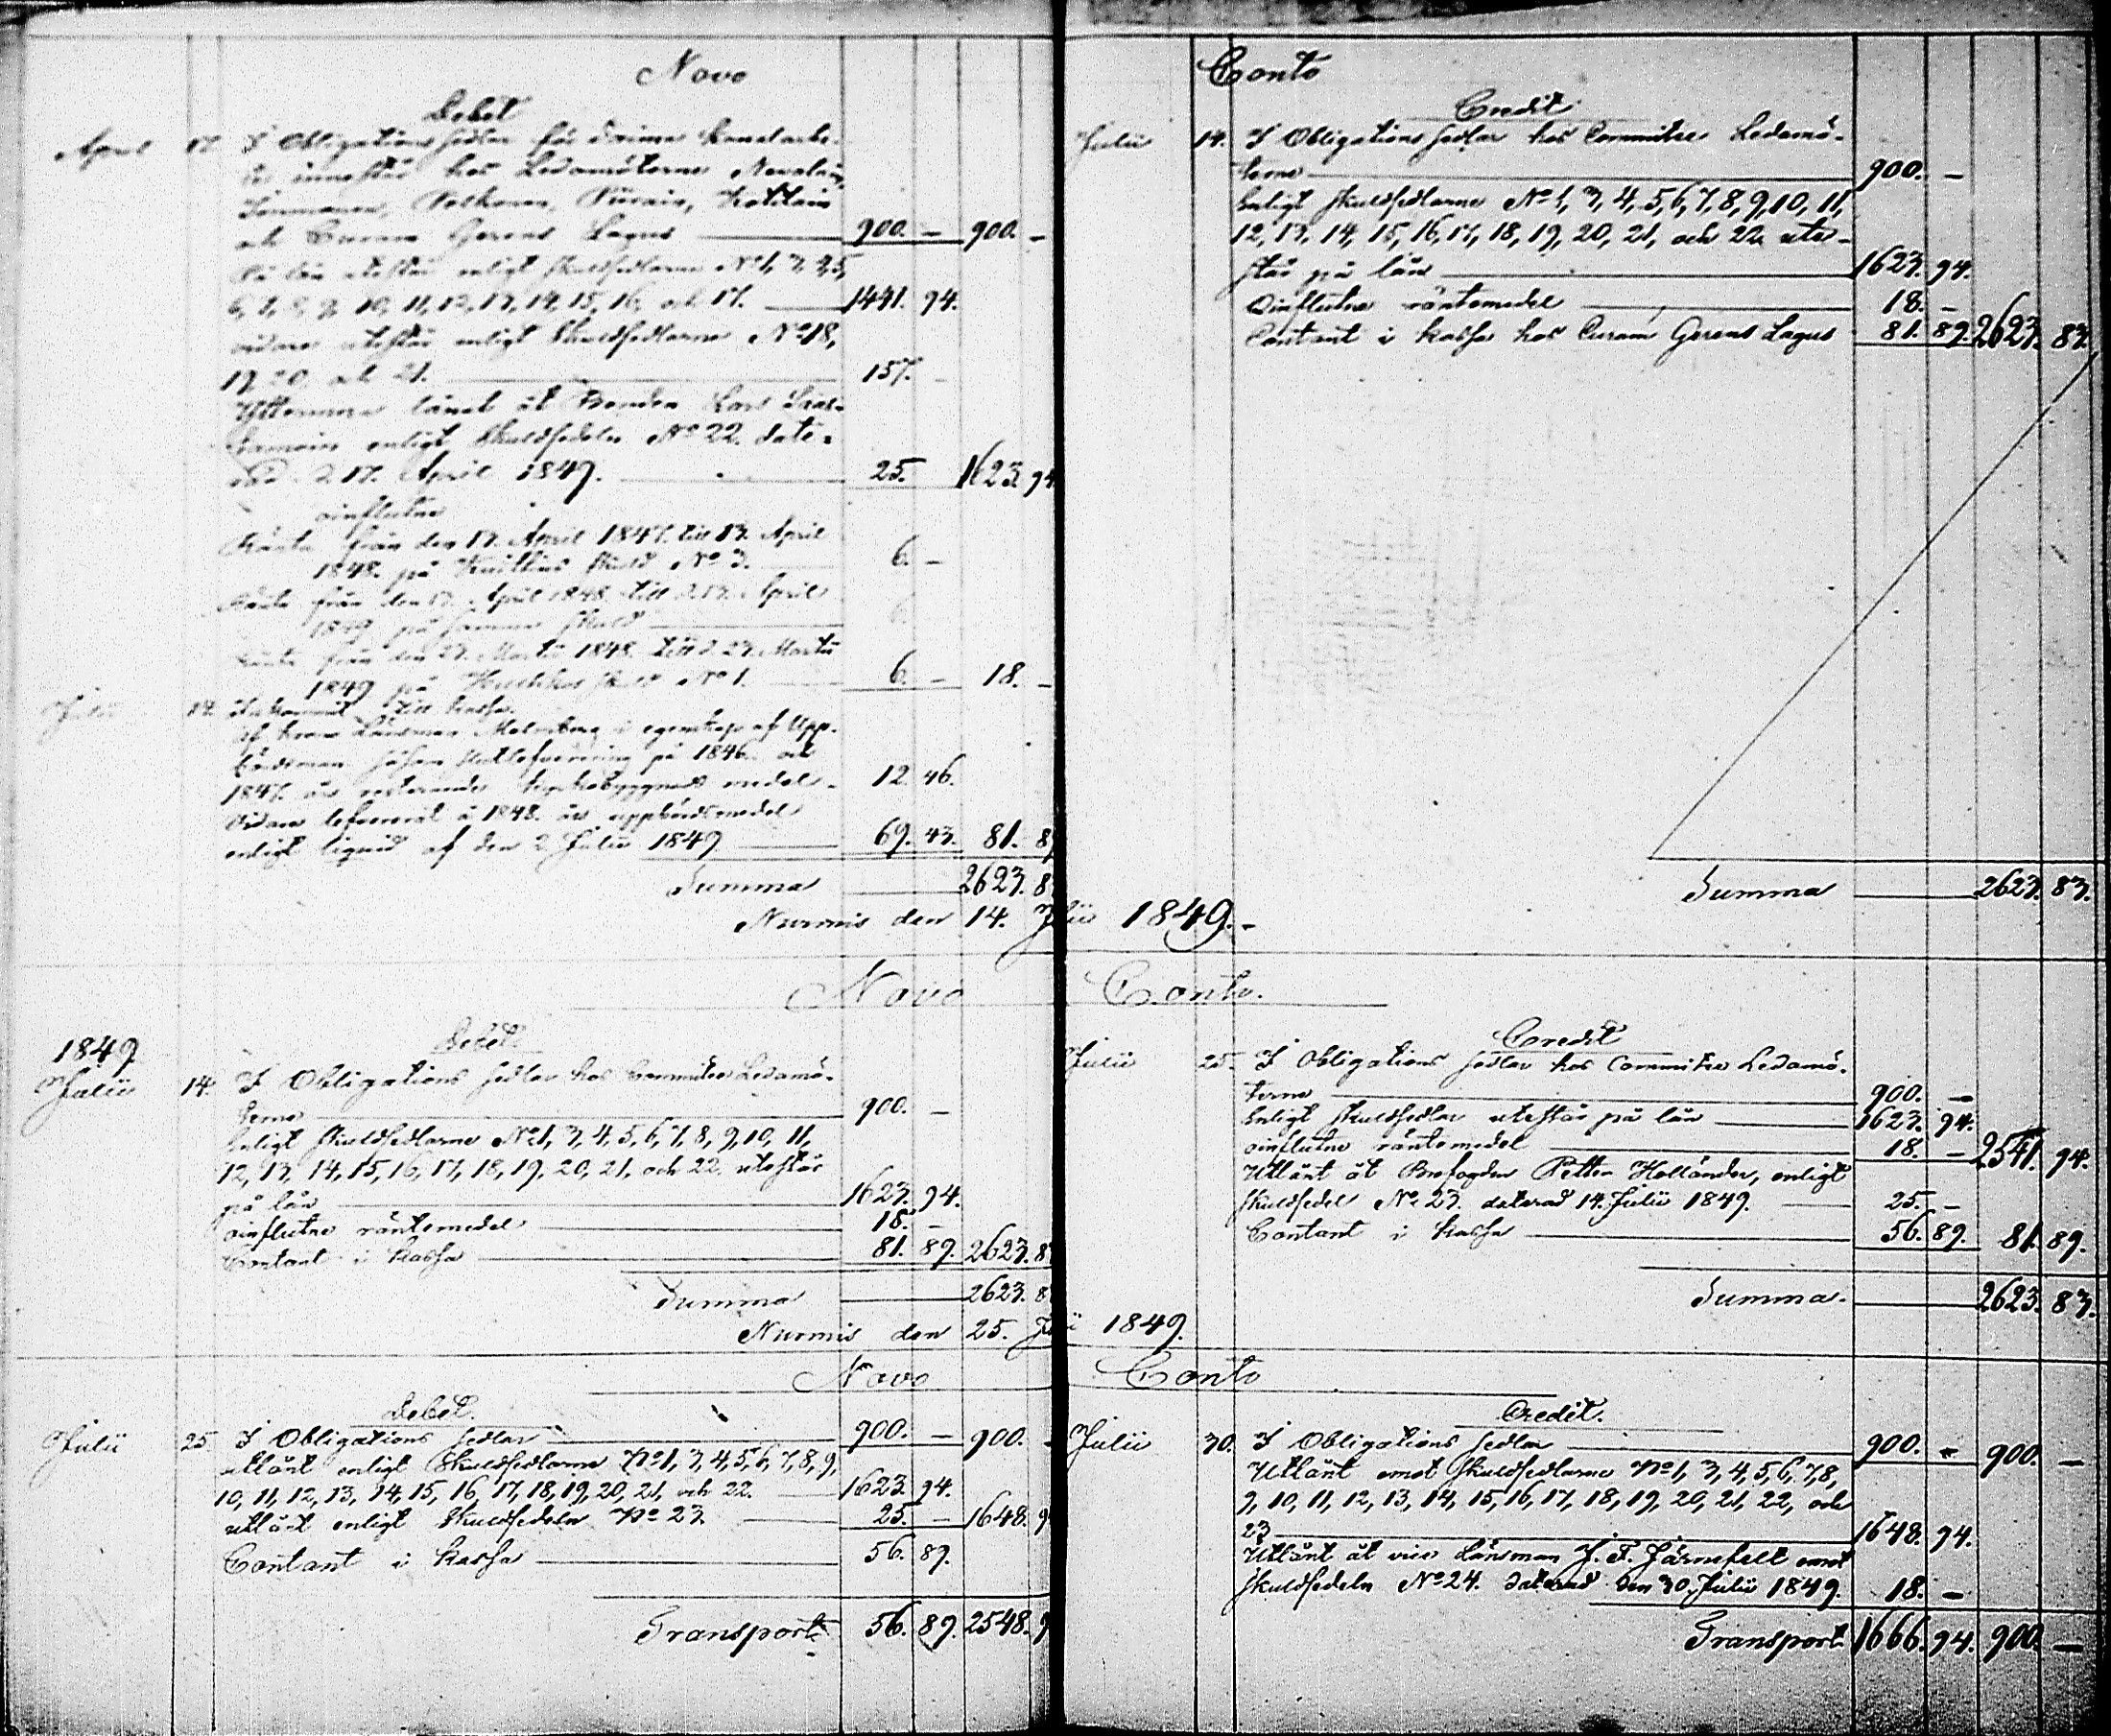 Novo Conto
Debet
April 17. I Obligations sedlar för
innestår hos Ledamöterne
och Curam Gerens Lagus 900. – 900. –
På lån utestår enligt skuldsedlarne No 1, 3, 4, 5,
6, 7, 8, 9, 10, 11, 12, 13, 14, 15, 16, och 17. 1441. 94.
vidare utestår enligt Skuldsedlarne No 18,
19, 20, och 21. 157. –
Yttermera lånat åt Bonden Lars
enligt Skuldsedeln No 22. date-
rad d. 17. April 1849. 25. 1623. 94
oinflutne
Ränta från den 13. April 1847. till 13. April
1848. på skuld No 3. 6. –
Ränta från den 13. April 1848. till d. 13. April
1849 på samma skuld 6.
Ränta från den 23. Martii 1848. till d. 23. Martii
1849 på skuld No 1. 6. – 18. –
Julii 14. Inkommit till kassa.
af Krono Länsman Malmberg i egenskap af Upp-
bördsman på 1846. och
1847. års resterande medel. 12. 46.
Vidare levererat å 1848. års uppbördsmedel
enligt liquid af den 2 Julii 1849 69. 43. 81. 89
Summa 2623. 8
Credit
Julii 14. I Obligations sedlar hos Committee Ledamö-
terne 900. –
Enligt skuldsedlarne No 1, 3, 4, 5, 6, 7, 8, 9, 10, 11,
12, 13, 14, 15, 16, 17, 18, 19, 20, 21, och 22 ute-
står på lån 1623. 94.
Oinflutne räntemedel 18. –
Contant i kassa hos Curam Gerens Lagus 81. 89. 2623. 83.
Summa 2623. 83.
Nurmis den 14. Julii 1849. –
Novo Conto.
Debet.
1849
Julii 14. I Obligations sedlar hos Committee Ledamö-
terne 900. –
Enligt skuldsedlarne No 1, 3, 4, 5, 6, 7, 8, 9, 10, 11,
12, 13, 14, 15, 16, 17, 18, 19, 20, 21, och 22. utestår
på lån 1623. 94.
oinflutne räntemedel 18. –
Contant i kassa 81. 89. 2623. 8
Summa 2623. 8
Credit
Julii 25. I Obligations sedlar hos Committee Ledamö-
terne 900. –
Enligt skuldsedlar utestår på lån 1623. 94.
oinflutne räntemedel 18. – 2541. 94.
Utlånt åt Brofogden Petter Holländer, enligt
skuldsedel No 23. daterad 14. Julii 1849. 25. –
Contant i kassa 56. 89. 81. 89.
Summa. 2623. 83.
Nurmis den 25. Julii 1849.
Novo Conto
Debet.
Julii 25. I Obligations sedlar 900. – 900. –
utlånt enligt Skuldsedlarne No 1, 3, 4, 5, 6, 7, 8, 9,
10, 11, 12, 13, 14, 15, 16, 17, 18, 19, 20, 21, och 22. 1623. 94.
utlånt enligt skuldsedeln No 23. 25. – 1648. 9
Contant i kassa 56. 89.
Transport. 56. 89. 2548. 9
Credit.
Julii 30. I Obligations sedlar 900. – 900. –
Utlånt emot skuldsedlarne No 1, 3, 4, 5, 6, 7, 8,
9, 10, 11, 12, 13, 14, 15, 16, 17, 18, 19, 20, 21, 22, och
23 1648. 94.
Utlånt åt vice Länsman J. F. Järnefelt emot
skuldsedeln No 24. daterad den 30. Julii 1849. 18. –
Transport. 1666. 94. 900. –